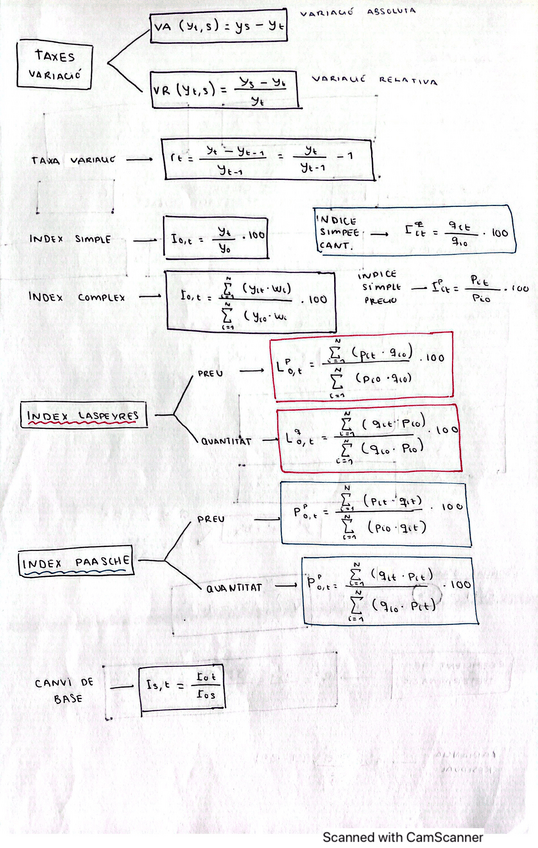 TAXES VARIACIÓ
VA (yt,s) = ys − yt
VARIACIÓ ABSOLUTA
VR (yt,s) = (ys − yt) / yt
VARIACIÓ RELATIVA
TAXA VARIACIÓ → rt = (yt − yt−1) / yt−1 = yt / yt−1 − 1
INDEX SIMPLE → I0,t = yt / y0 · 100
ÍNDICE SIMPLE CANT. → I^q it = qit / qi0 · 100
INDEX COMPLEX → I0,t = Σ^N i=1 (yit · wi / Σ^N i=1 (yi0 · wi · 100
ÍNDICE SIMPLE PRECIO → I^p it = pit / pi0 · 100
INDEX LASPEYRES
PREU → L^p 0,t = Σ^N i=1 (pit · qi0) / Σ^N i=1 (pi0 · qi0) · 100
QUANTITAT → L^q 0,t = Σ^N i=1 (qit · pi0) / Σ^N i=1 (qi0 · pi0) · 100
INDEX PAASCHE
PREU → P^p 0,t = Σ^N i=1 (pit · qit) / Σ^N i=1 (pi0 · qit) · 100
QUANTITAT → P^p 0,t = Σ^N i=1 (qit · pit) / Σ^N i=1 (qi0 · pit) · 100
CANVI DE BASE → Is,t = I0t / I0s
Scanned with CamScanner